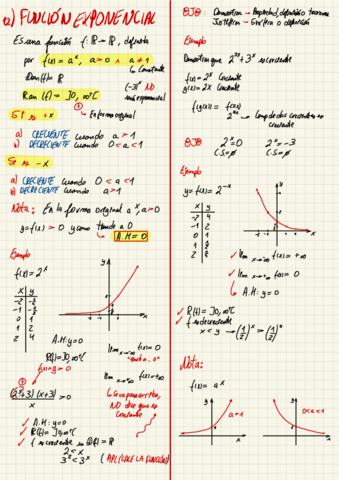 12) FUNCIÓN EXPONENCIAL
Es una función f: R → R, definita
por f(x) = aˣ, a > 0 ∧ a ≠ 1
↳ Constante
Dom(f) = R
(-3)ˣ NO
Ran (f) = ]0, ∞⁺[
será exponencial
Si es +x
En forma original
a) CRECIENTE cuando a > 1
b) DECRECIENTE cuando 0 < a < 1
Si es -x
a) CRECIENTE cuando 0 < a < 1
b) DECRECIENTE cuando a > 1
Nota: En la forma original aˣ, a > 0
y = f(x) > 0 y como tiende a 0
↳ A.H = 0
Ejemplo
f(x) = 2ˣ
x y
0 1
1 2
2 4
A.H: y=0
R(f) = ]0, ∞⁺[
f(x) = y > 0
lím f(x) = 0
x→-∞
lím f(x) = +∞
x→+∞
(2ˣ+3)(x+3) > 0
x
↳ Es asíntota,
NO dice que es
constante
✓ A.H: y=0
✓ R(f) = ]0, ∞⁺[
✓ f es creciente
2 < x
3² < 3ˣ (APLIQUE LA FUNCIÓN)
OJO: Demostrar → Propiedad, definición, teorema
Justificar → Gráfica o definición
Ejemplo
Demostrar que 2^(2x)+3ˣ es creciente
f(x) = 2ˣ Creciente
y(x) = 2x Creciente
OJO 2ˣ=0 2ˣ=-3
C.S=∅ C.S=∅
Ejemplo
y = f(x) = 2⁻ˣ
x y
-2 4
-1 2
0 1
✓ lím f(x) = +∞
x→-∞
✓ lím f(x) = 0
x→+∞
↳ A.H: y=0
✓ R(f) = ]0, ∞⁺[
✓ f es decreciente
x < y → (1/2)ˣ > (1/2)ʸ
Nota:
f(x) = aˣ
y
y
a > 1
0 < a < 1
x
x